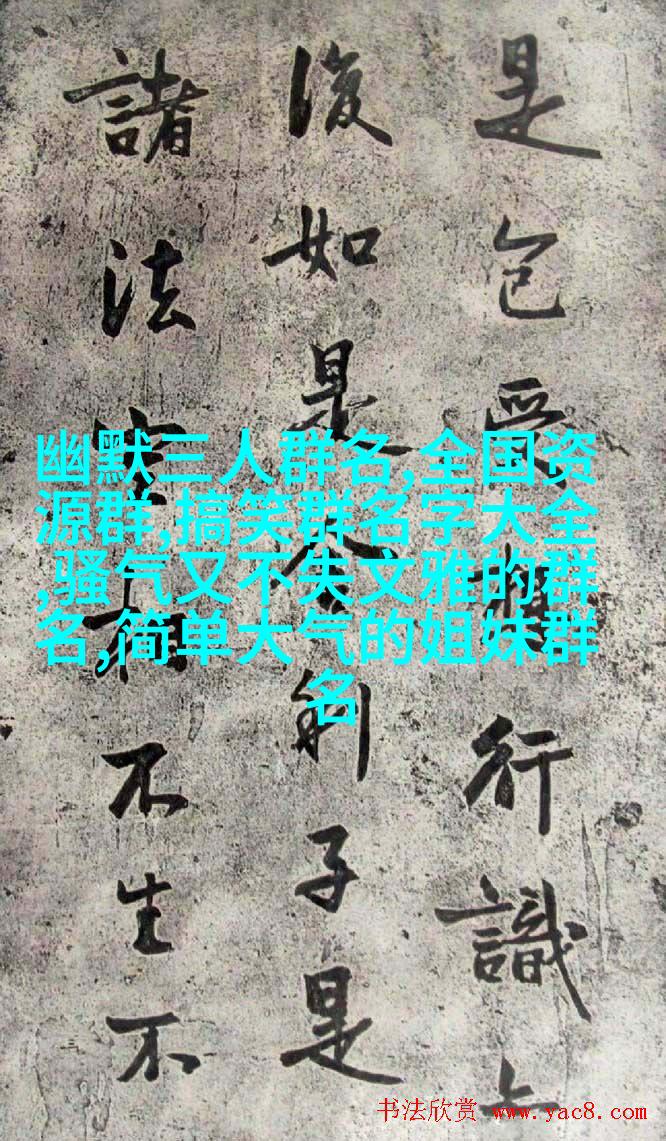 是色受想行識
復如是舍利子是
諸法空相不生不
幽默三人群名,全国资
源群,搞笑群名字大全
,骚气又不失文雅的群
名,简单大气的姐妹群
名
书法欣赏 www.yac8.com